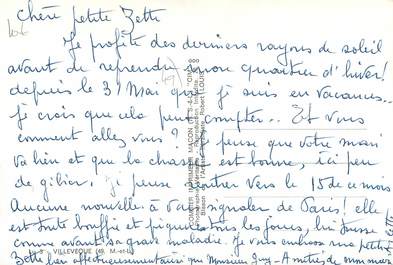 Chère petite Zette
Je profite des derniers rayons de soleil
avant de reprendre mon quartier d'hiver!
depuis le 31 Mai que je suis en vacances..
je crois que cela peut compter.. Et vous
comment allez vous? Je pense que votre mari
va bien et que la chasse est bonne, ici peu
de gibier, je pense rentrer vers le 15 de ce mois
Aucune nouvelle à vous signaler de Paris! elle
est toute bouffie et piquée tous les jours, lui tousse
comme avant sa grave maladie. Je vous embrasse ma petite
Zette bien affectueusement ainsi que Monsieur Guy - Amitiés de mon mari
COMBIER IMPRIMEUR MACON
VILLEVEQUE (49. M.-et-L.)